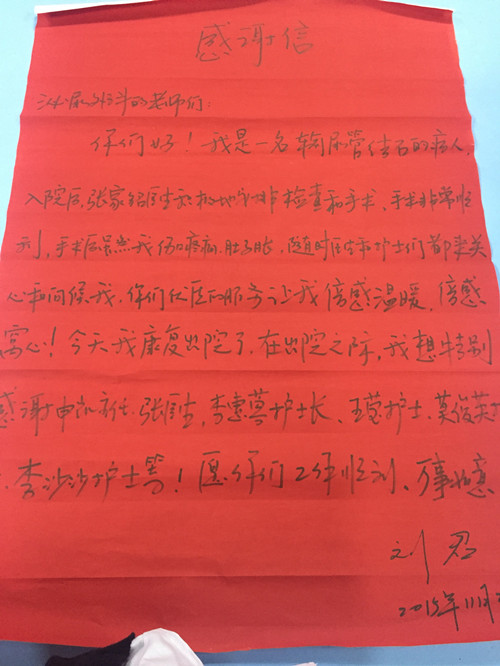 感谢信
泌尿外科的老师们:
你们好!我是一名输尿管结石的病人,
入院后,张家铭医生积极地安排检查和手术、手术非常顺
利,手术后虽然我伤口疼痛、肚子胀,随时医生和护士们都来关
心和问候我,你们优质的服务让我倍感温暖,倍感
窝心!今天我康复出院了,在出院之际,我想特别
感谢申凯主任、张医生,李惠萍护士长、王莹护士、莫俊英护
、李沙沙护士等!愿你们工作顺利、万事如意
刘君
2015年11月